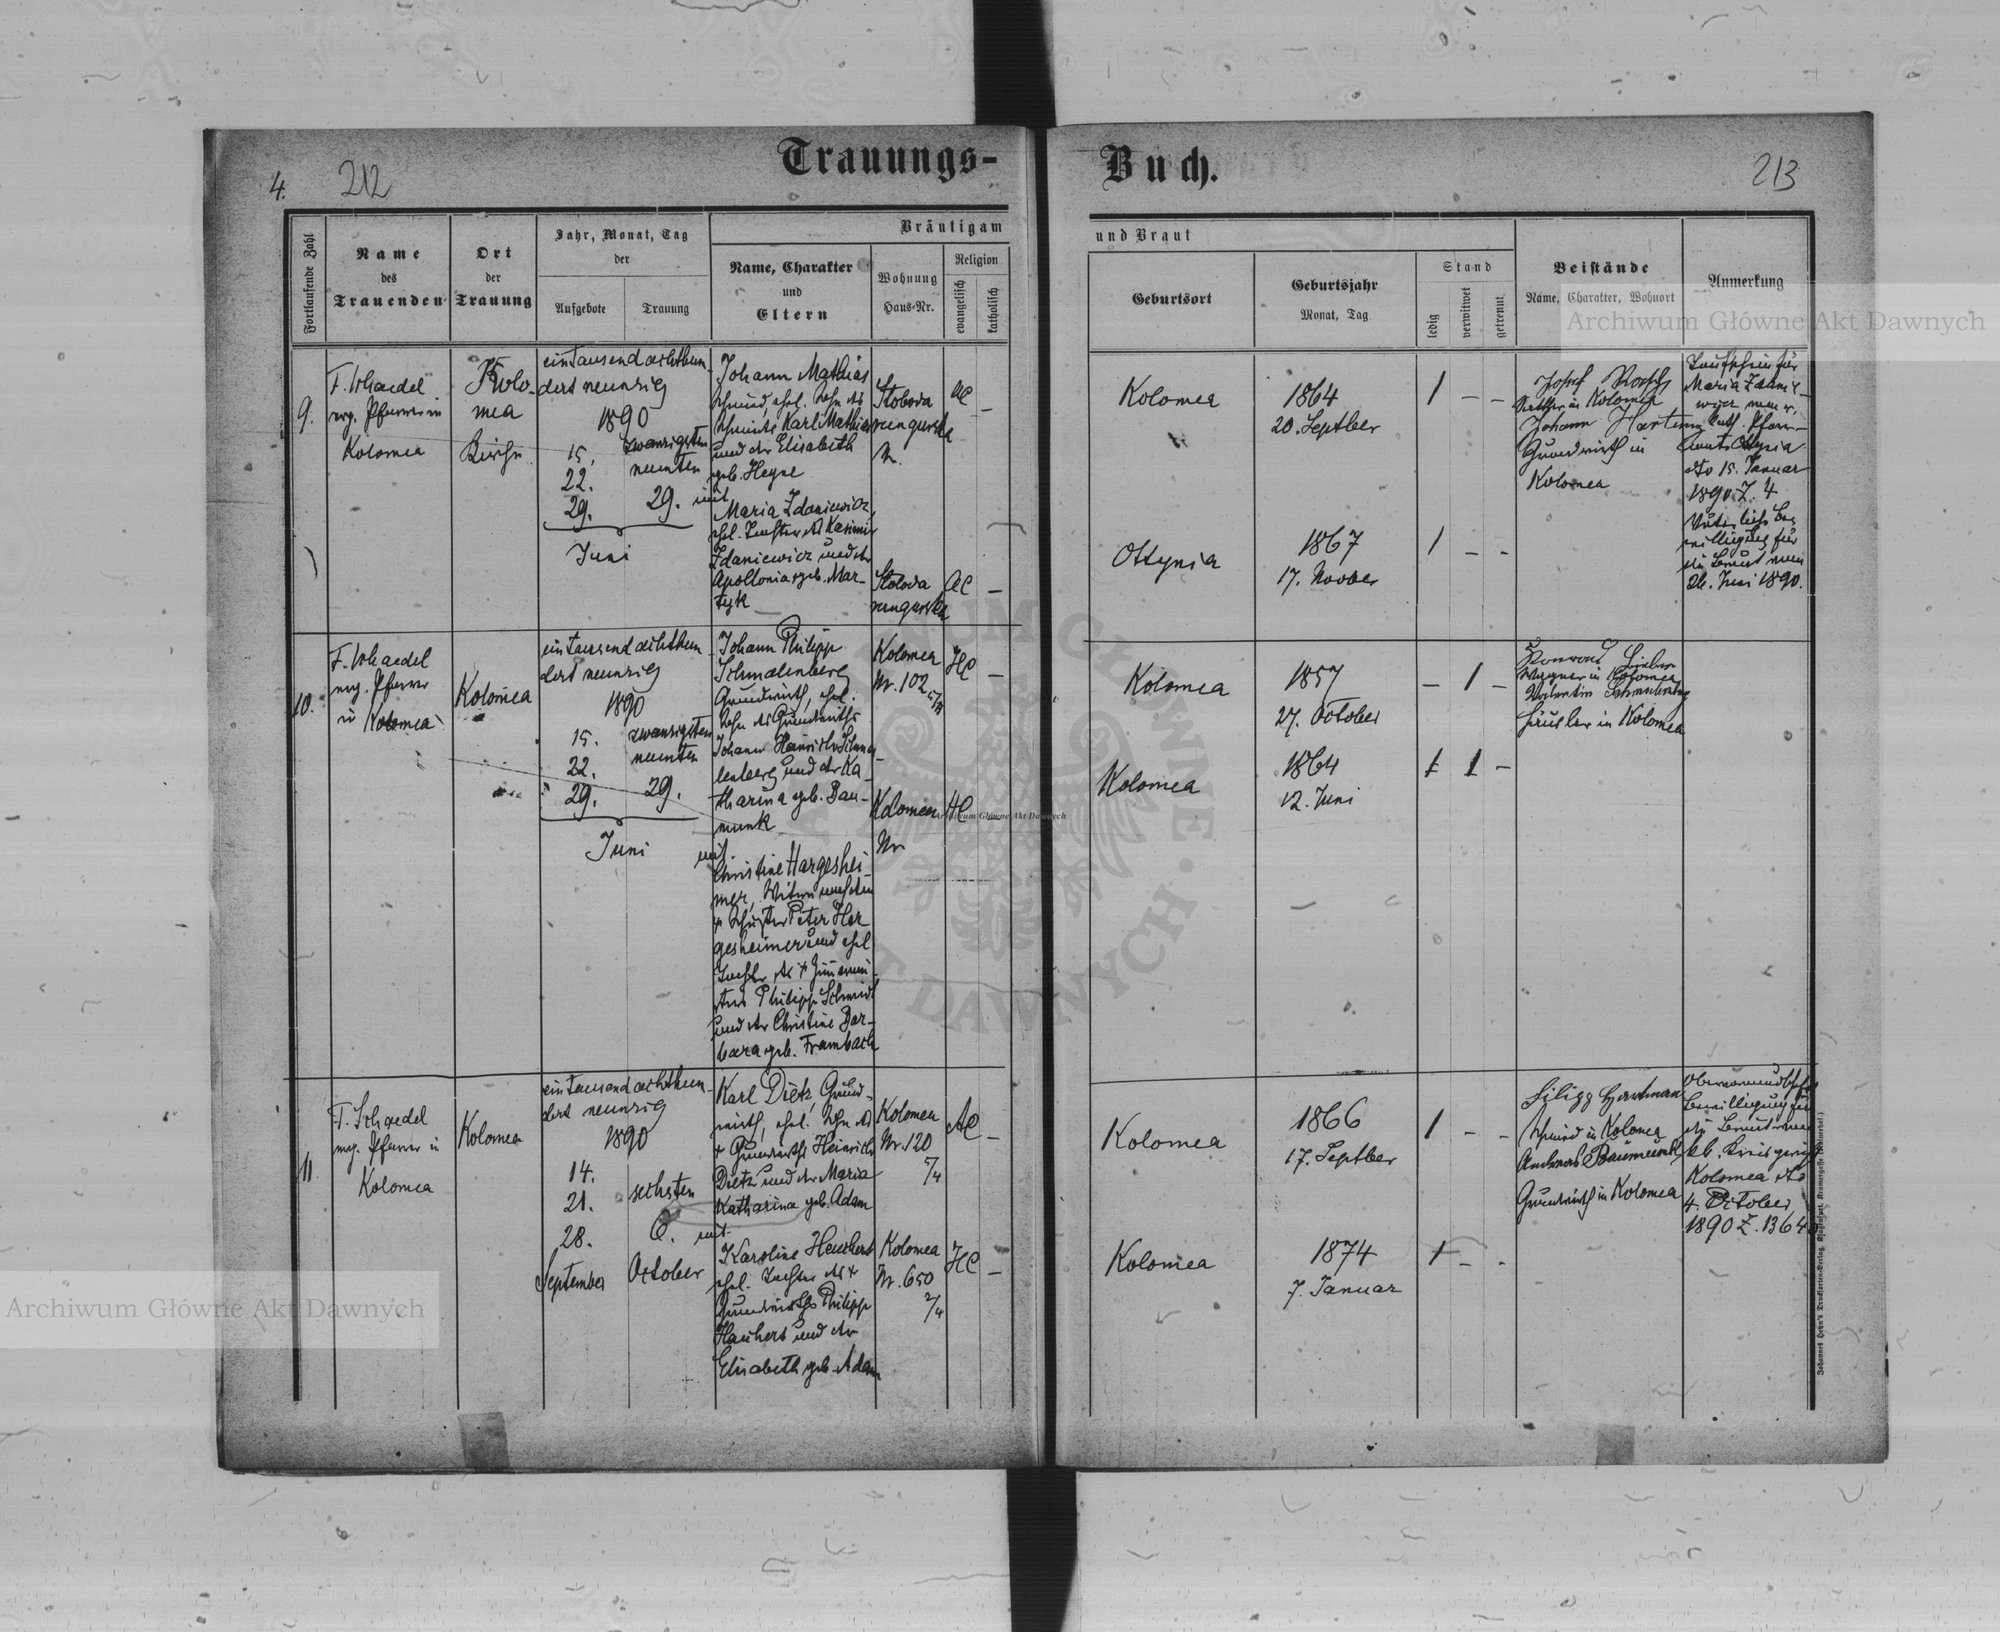 Trauungs-
Buch.
4.
212
213
Fortlaufende Zahl
Name
des
Trauenden
Ort
der
Trauung
Jahr, Monat, Tag
der
Aufgebote
Trauung
Bräutigam
Name, Charakter
und
Eltern
Wohnung
Haus-Nr.
Religion
evangelisch
katholisch
und Braut
Geburtsort
Geburtsjahr
Monat, Tag
Stand
ledig
verwitwet
getrennt
Beistände
Name, Charakter, Wohnort
Anmerkung
9.
F. Schaedel
evg. Pfarrer in
Kolomea
Kolo-
mea
Kirche
eintausend achthun-
dert neunzig
1890
15.
22.
29.
zwanzigsten
neunten
29.
Juni
Johann Mathias
Schmied, ehel. Sohn des
Karl Mathias
und der Elisabeth
geb. Heyse
mit
Maria Zdaniewicz,
ehel. Tochter des Kasimir
Zdaniewicz und der
Apollonia geb. Mar-
tyk
Sloboda
rungurska
Nr.
AC
–
Sloboda
rungurska
AC
–
Kolomea
1864
20. Septber
1 – –
Ottynia
1867
17. Novber
1 – –
Josef
in Kolomea
Johann Hartmann
Grundwirth in
Kolomea
Taufschein für
Maria Zdanie-
wicz vom r.
kath. Pfarr-
amt Ottynia
dto 15. Januar
1890 Z. 4
Väterliche Be-
willigung für
die Braut vom
26. Juni 1890.
10.
F. Schaedel
evg. Pfarrer
in Kolomea
Kolomea
eintausend achthun-
dert neunzig
1890
15.
22.
29.
zwanzigsten
neunten
29.
Juni
Johann Philipp
Schmalenberg
Grundwirth, ehel.
Sohn des Grundwirths
Johann Heinrich Schma-
lenberg und der Ka-
tharina geb. Bau-
munk
mit
Christine Hargeshei-
mer, Witwe nach dem
† Schuster Peter Her
gesheimer und ehel
Tochter des † Zimmer
Philipp Schmidt
und der Christine Bar-
bara geb. Frambach
Kolomea
Nr. 102
HC
–
Kolomea
Nr
HC
Kolomea
1857
27. October
– 1 –
Kolomea
1864
12. Juni
1 1 –
Konrad
Wagner in Kolomea
Valentin Schmalenberg
Häusler in Kolomea
11
F. Schaedel
evg. Pfarrer in
Kolomea
Kolomea
eintausend achthun-
dert neunzig
1890
14.
21.
28.
September
sechsten
6.
October
Karl Dietz Grund-
wirth, ehel. Sohn des
† Grundwirths Heinrich
Dietz und der Maria
Katharina geb. Adam
mit
Karoline Heuchert
ehel. Tochter des †
Grundwirths Philipp
Hauhert und der
Elisabeth geb. Adam
Kolomea
Nr. 120
5/4
AC
–
Kolomea
Nr. 650
2/4
HC
–
Kolomea
1866
17. Septber
1 – –
Kolomea
1874
7. Januar
1 – -
Filipp Hartman
Schmied in Kolomea
Andreas Baumunk
Grundwirth in Kolomea
Obervormundschaft
Bewilligung für
die Braut vom
kk. Kreisgericht
Kolomea dto
4. October
1890 Z. 1364
Archiwum Główne Akt Dawnych
Archiwum Główne Akt Dawnych
Archiwum Główne Akt Dawnych